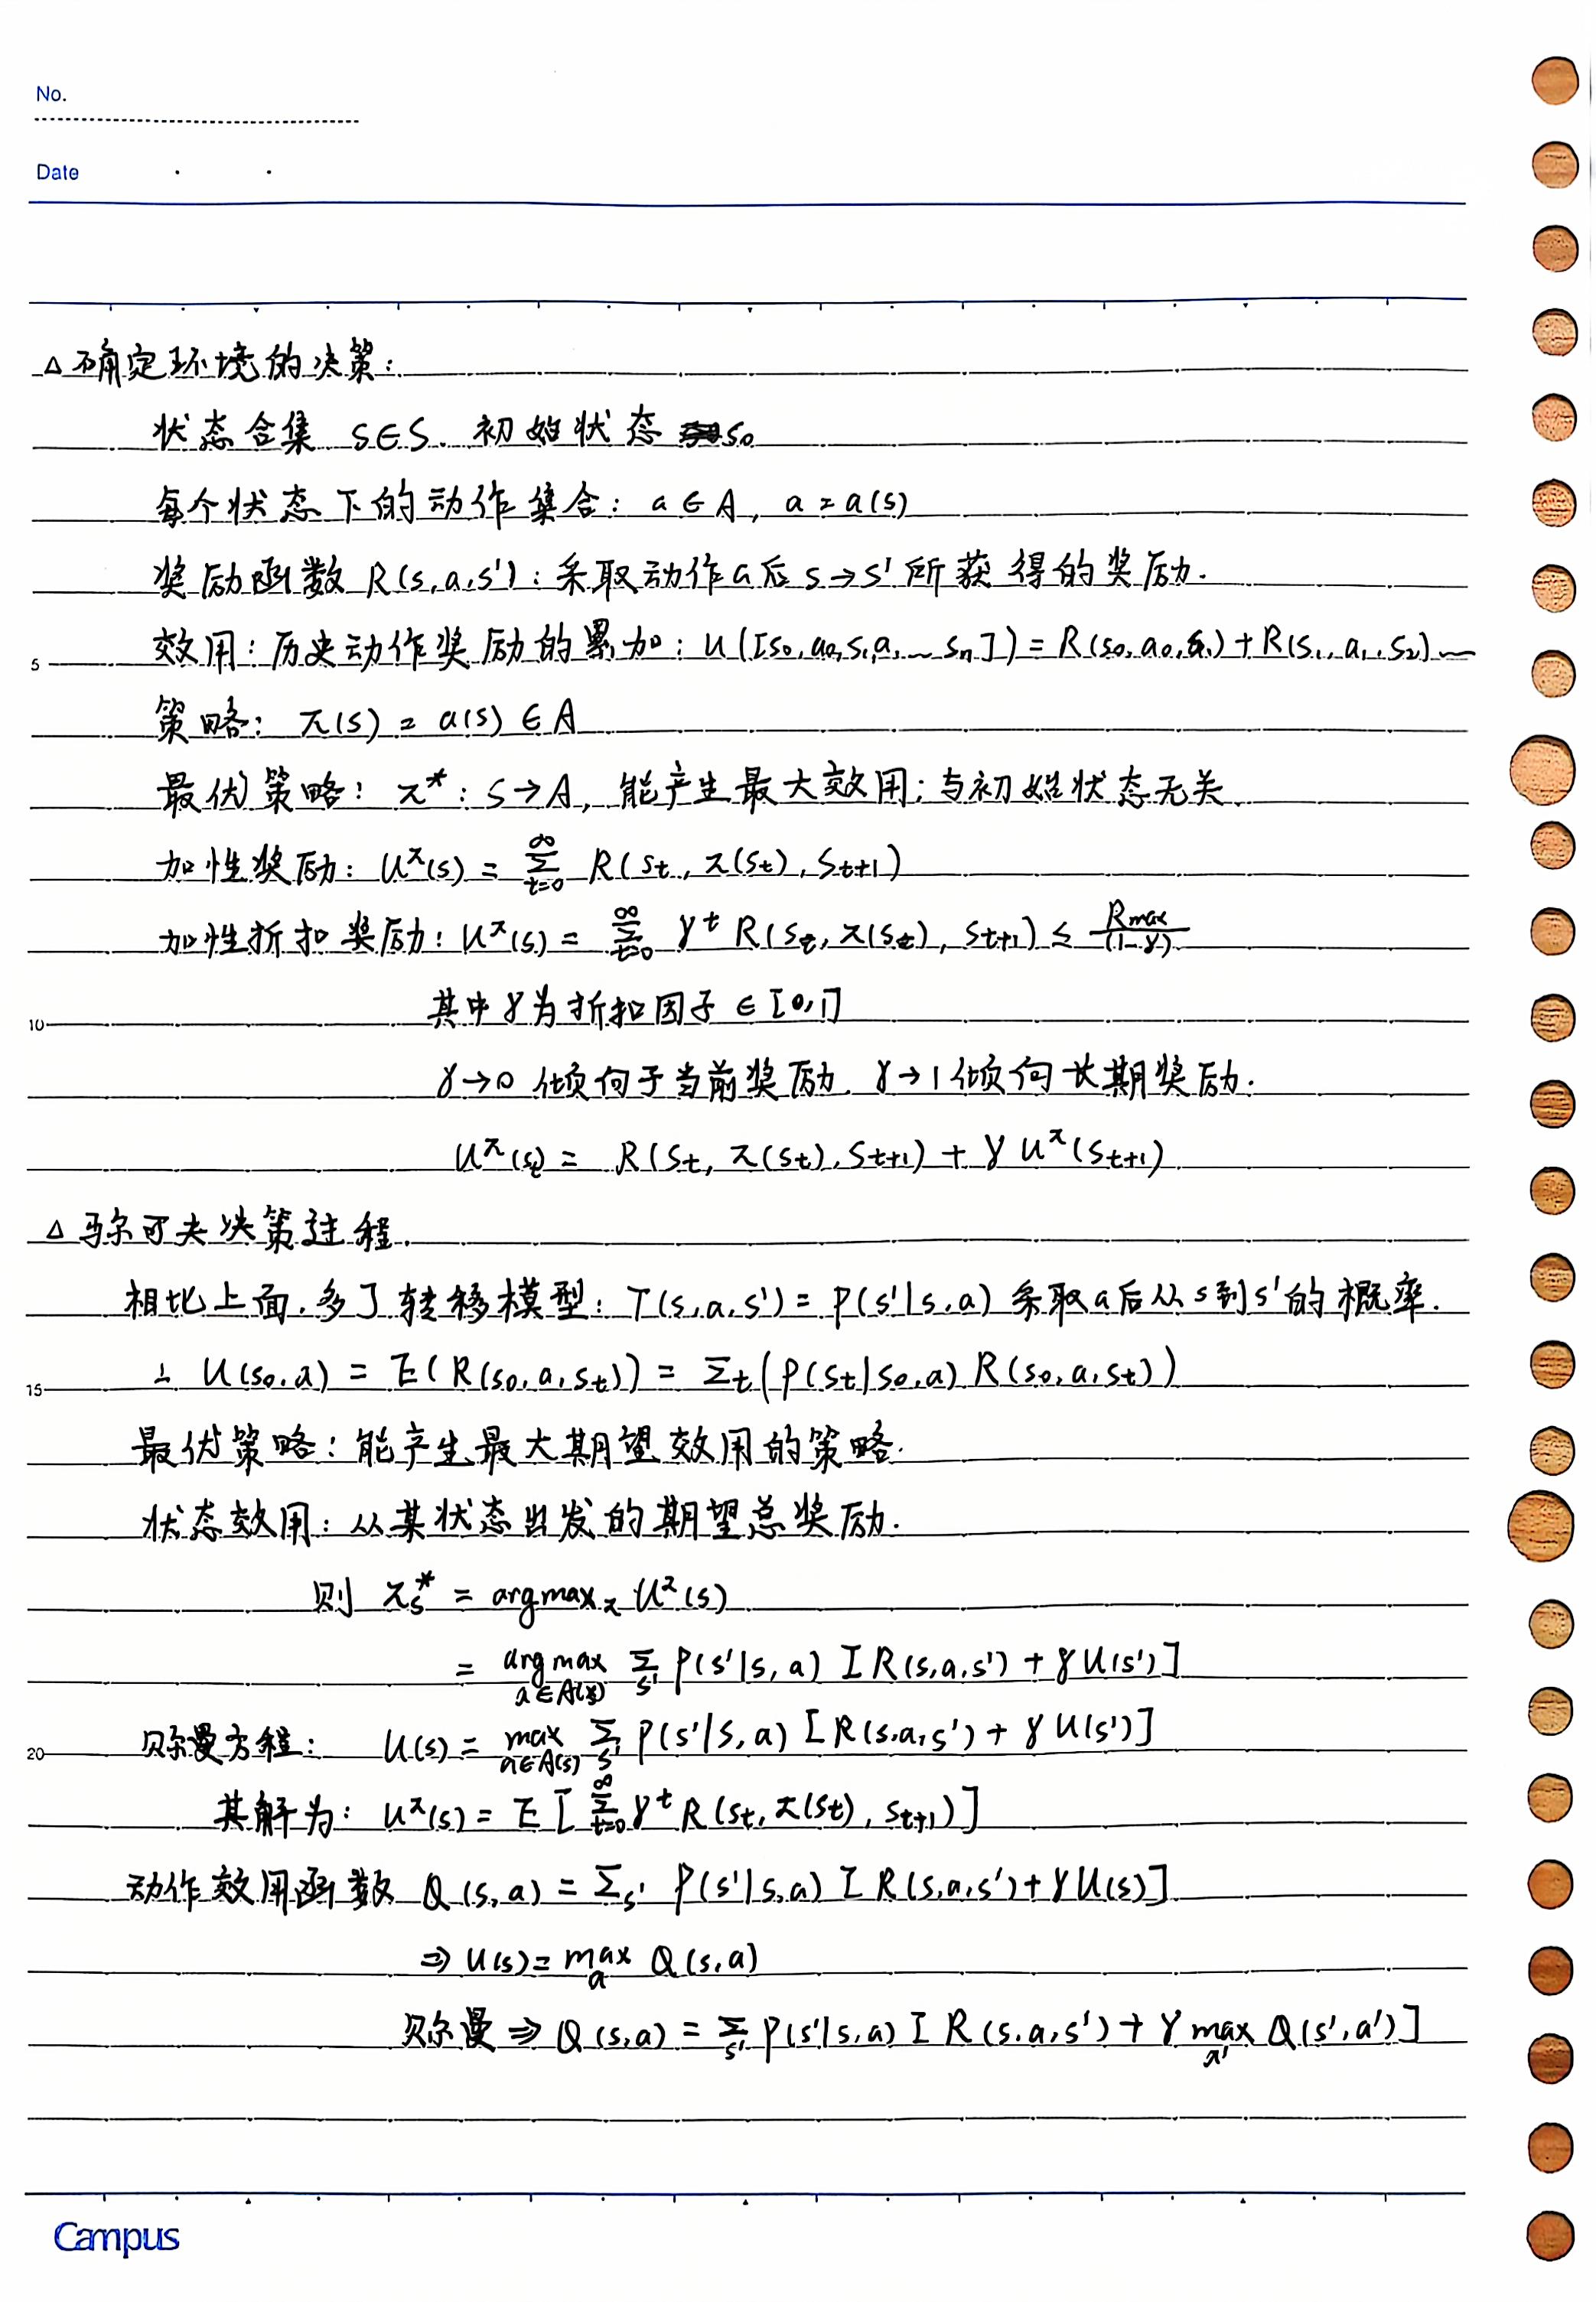 No.
Date
△ 不确定环境的决策:
状态合集 s∈S. 初始状态 s₀
每个状态下的动作集合: a∈A, a=a(s)
奖励函数 R(s,a,s'): 采取动作a后 s→s' 所获得的奖励.
5 效用: 历史动作奖励的累加: U([s₀,a₀,s₁,a₁…sₙ])=R(s₀,a₀,s₁)+R(s₁,a₁,s₂)…
策略: π(s)=a(s)∈A
最优策略: π*: S→A, 能产生最大效用; 与初始状态无关.
加性奖励: U^π(s) = ∑_{t=0}^{∞} R(s_t, π(s_t), s_{t+1})
加性折扣奖励: U^π(s) = ∑_{t=0}^{∞} γ^t R(s_t, π(s_t), s_{t+1}) ≤ R_max/(1-γ)
10 其中γ为折扣因子 ∈[0,1]
γ→0 倾向于当前奖励. γ→1 倾向长期奖励.
U^π(s_t) = R(s_t, π(s_t), s_{t+1}) + γ U^π(s_{t+1})
△ 马尔可夫决策过程.
相比上面. 多了转移模型: T(s,a,s') = P(s'|s,a) 采取a后从s到s'的概率.
15 ⊥ U(s₀,a) = E(R(s₀,a,s_t)) = ∑_t(P(s_t|s₀,a) R(s₀,a,s_t))
最优策略: 能产生最大期望效用的策略.
状态效用: 从某状态出发的期望总奖励.
则 π_s^* = argmax_π U^π(s)
= argmax_{a∈A(s)} ∑_{s'} P(s'|s,a) [R(s,a,s') + γU(s')]
20 贝尔曼方程: U(s) = max_{a∈A(s)} ∑_{s'} P(s'|s,a) [R(s,a,s') + γU(s')]
其解为: U^π(s) = E[∑_{t=0}^{∞} γ^t R(s_t, π(s_t), s_{t+1})]
动作效用函数 Q(s,a) = ∑_{s'} P(s'|s,a) [R(s,a,s') + γU(s)]
⇒ U(s) = max_a Q(s,a)
贝尔曼 ⇒ Q(s,a) = ∑_{s'} P(s'|s,a) [R(s,a,s') + γ max_{a'} Q(s',a')]
Campus